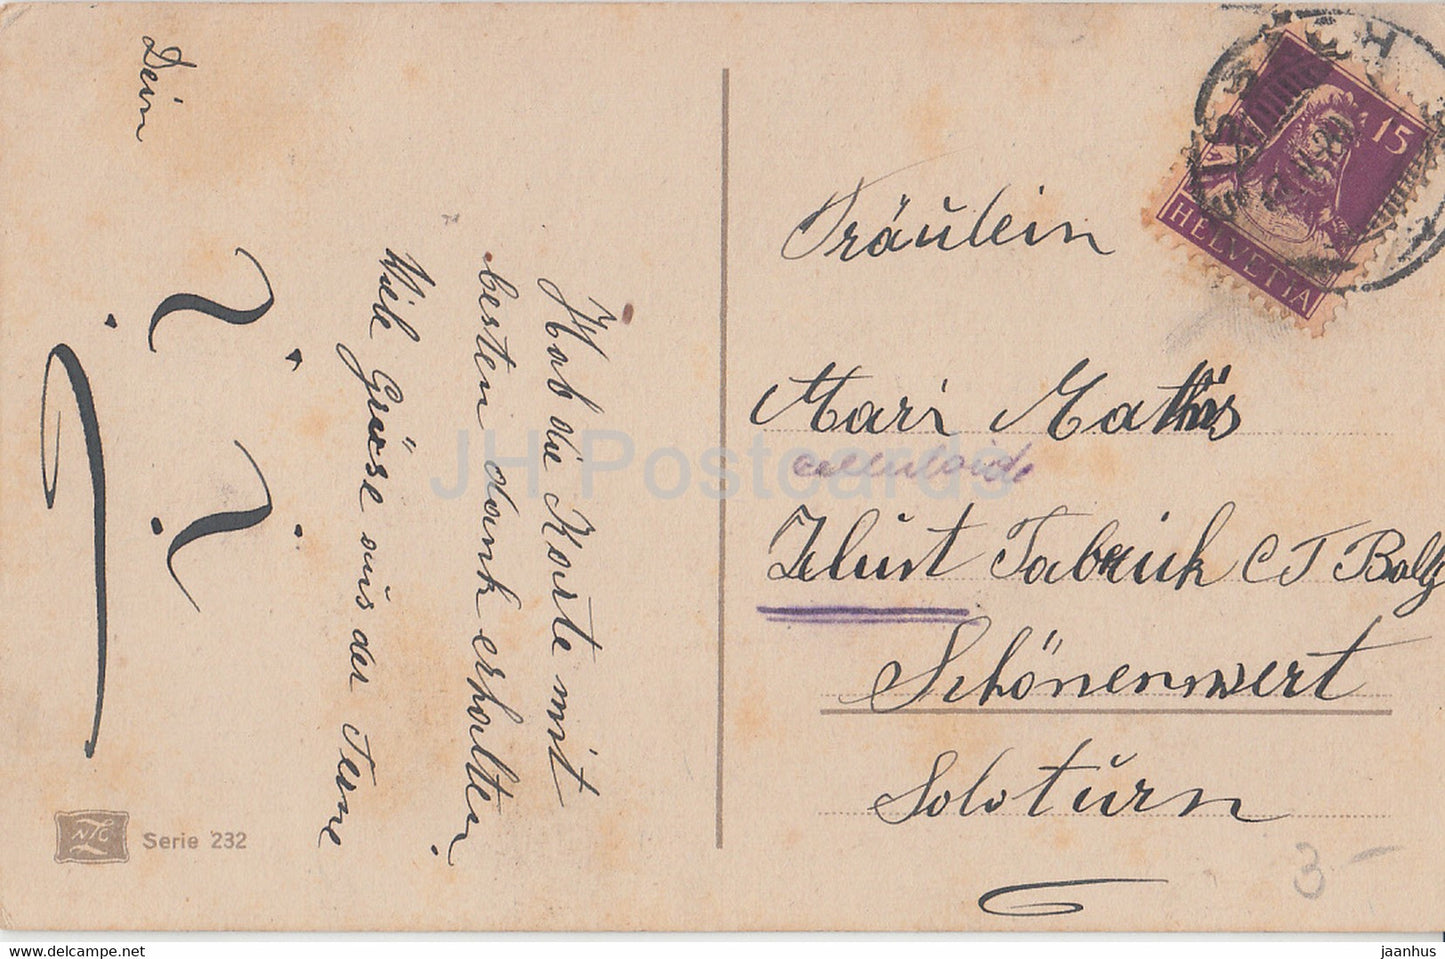 Dein
Hab die Karte mit
besten dank erhalten.
Viele Grüsse aus der Ferne
Fräulein
Mari Mathis
celluloide
Fabrick C F Bally
Schönenwert
Soloturn
3 –
15
HELVETIA
NTC
Serie 232
JH Postcards
www.delcampe.net
jaanhus